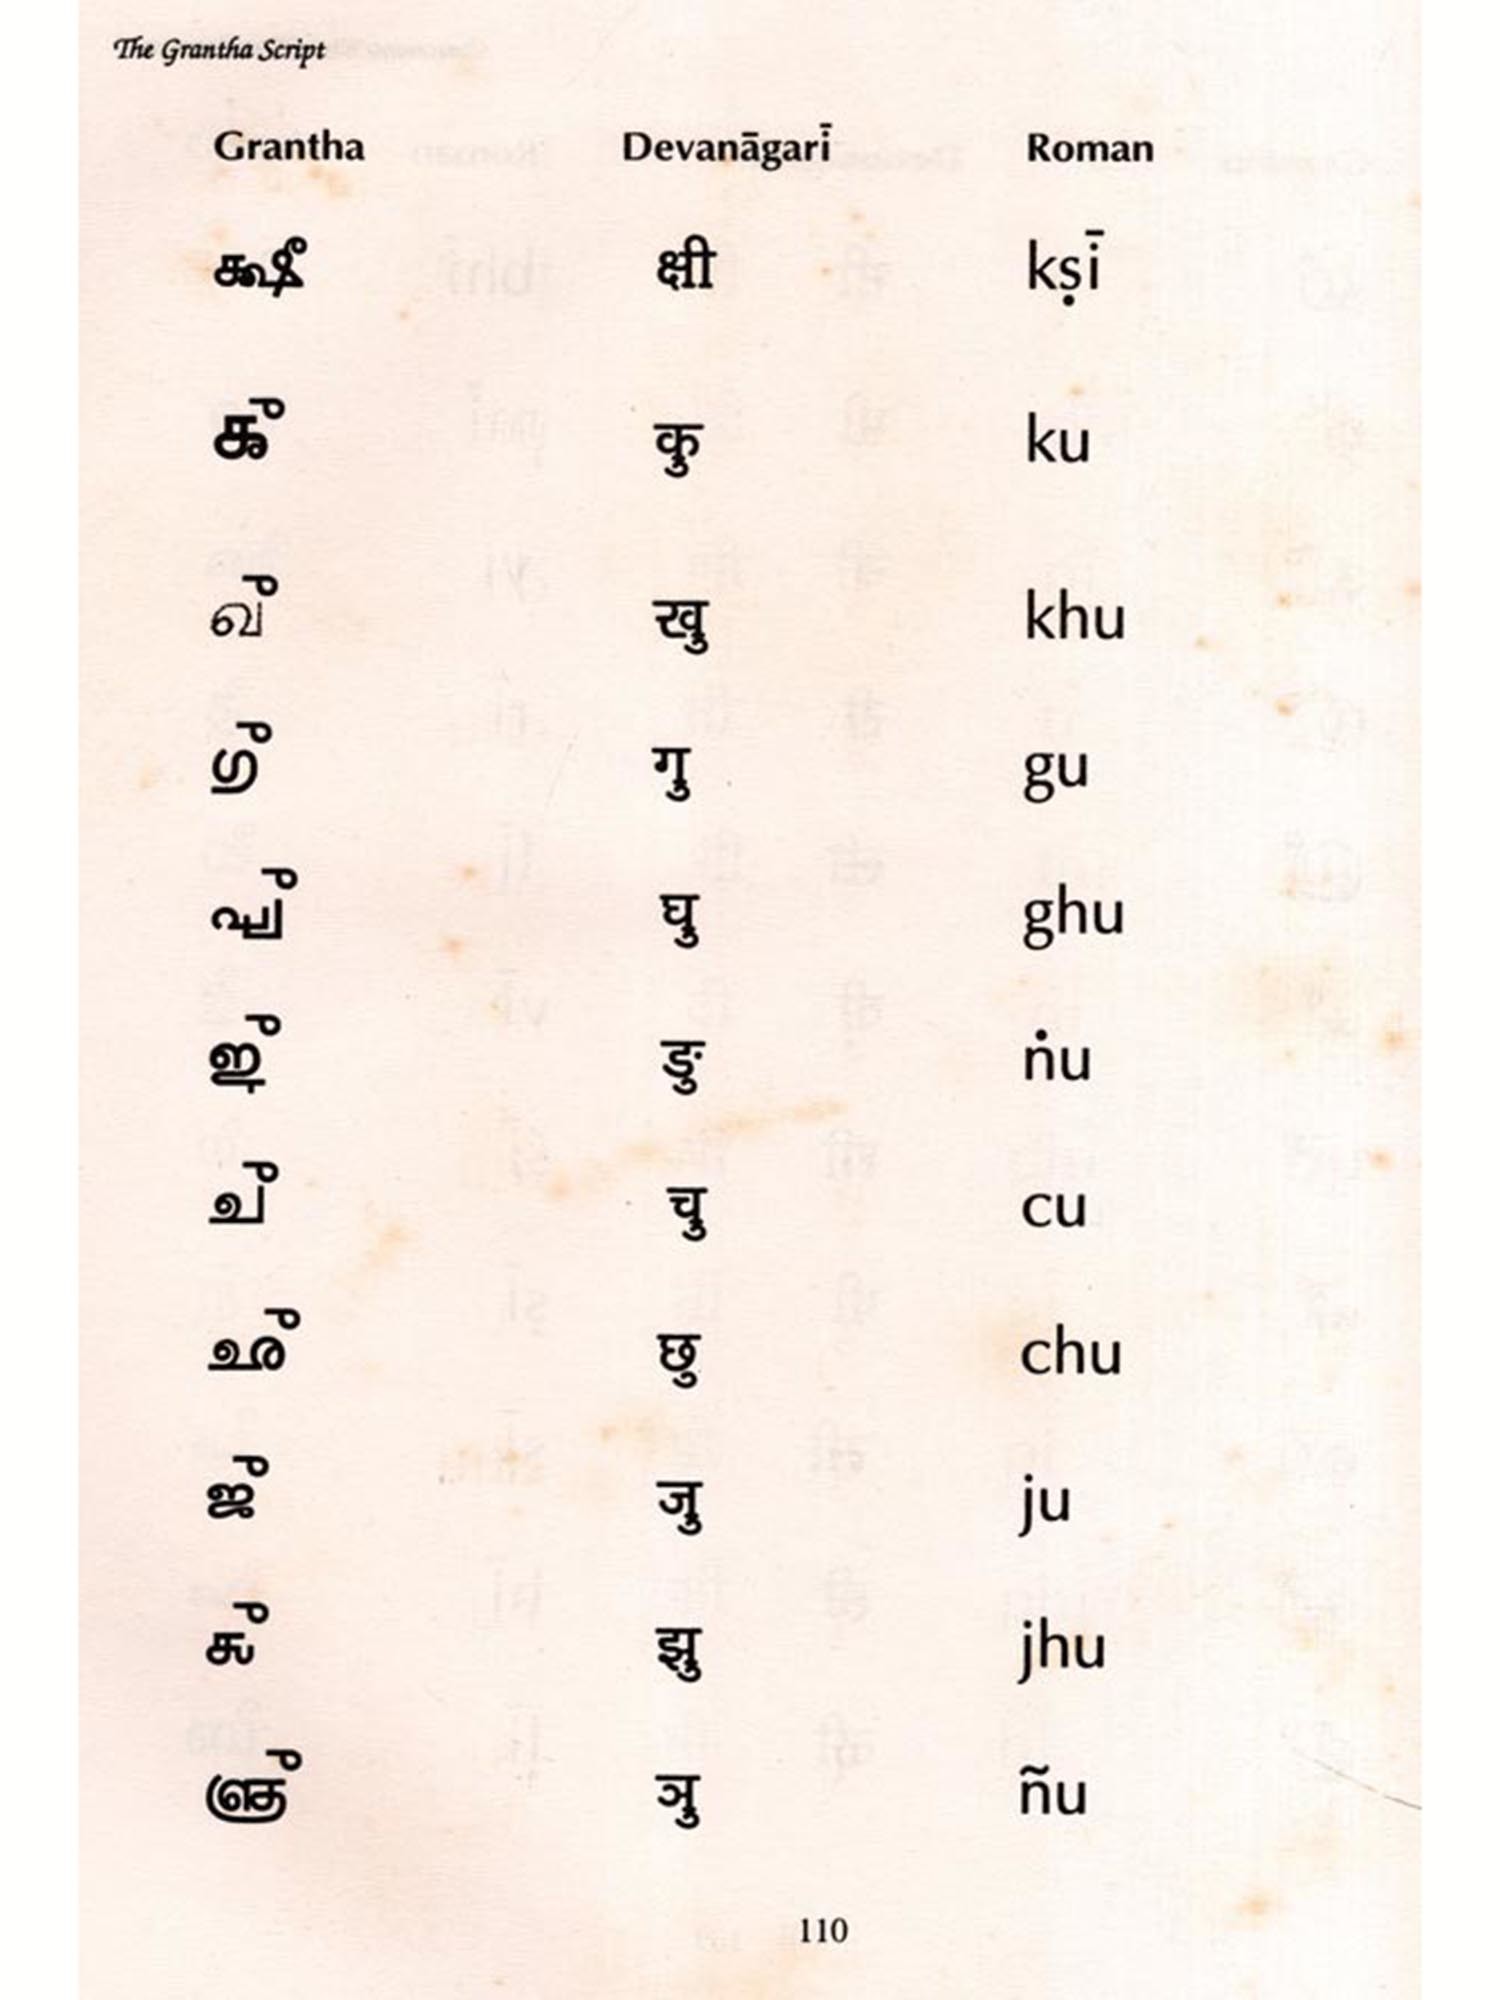 The Grantha Script
Grantha Devanāgarī Roman
𑌕𑍍𑌷𑍀 क्षी kṣī
𑌕𑍁 कु ku
𑌖𑍁 खु khu
𑌗𑍁 गु gu
𑌘𑍁 घु ghu
𑌙𑍁 ङु ṅu
𑌚𑍁 चु cu
𑌛𑍁 छु chu
𑌜𑍁 जु ju
𑌝𑍁 झु jhu
𑌞𑍁 ञु ñu
110